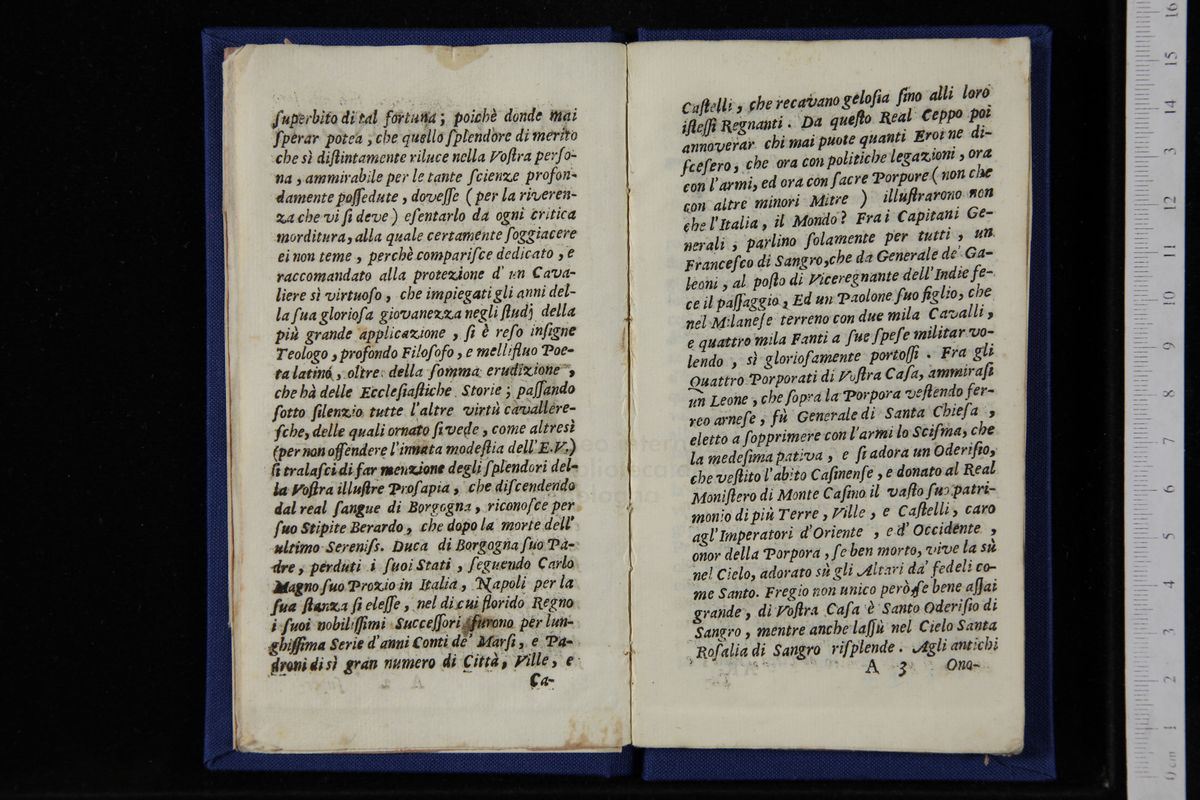 ſuperbito di tal fortuna ; poichè donde mai
ſperar potea , che quello ſplendore di merito
che sì diſtintamente riluce nella Voſtra perſo-
na , ammirabile per le tante ſcienze profon-
damente poſſedute , doveſſe ( per la riveren-
za che vi ſi deve ) eſentarlo da ogni critica
morditura, alla quale certamente ſoggiacere
ei non teme , perchè compariſce dedicato , e
raccomandato alla protezione d' un Cava-
liere sì virtuoſo , che impiegati gli anni del-
la ſua glorioſa giovanezza negli ſtudj della
più grande applicazione , ſi è reſo inſigne
Teologo , profondo Filoſofo , e mellifluo Poe-
ta latino , oltre della ſomma erudizione ,
che hà delle Eccleſiaſtiche Storie ; paſſando
ſotto ſilenzio tutte l'altre virtù cavallere-
ſche, delle quali ornato ſi vede , come altresì
(per non offendere l'innata modeſtia dell'E.V.)
ſi tralaſci di far menzione degli ſplendori del-
la Voſtra illuſtre Proſapia , che diſcendendo
dal real ſangue di Borgogna , riconoſce per
ſuo Stipite Berardo , che dopo la morte dell'
ultimo Sereniſs. Duca di Borgogna ſuo Pa-
dre , perduti i ſuoi Stati , ſeguendo Carlo
Magno ſuo Prozio in Italia , Napoli per la
ſua ſtanza ſi eleſſe , nel di cui florido Regno
i ſuoi nobiliſſimi Succeſſori furono per lun-
ghiſſima Serie d'anni Conti de' Marſi, e Pa-
droni di sì gran numero di Città, Ville, e
Ca-
Caſtelli , che recavano geloſia fino alli loro
iſteſſi Regnanti . Da queſto Real Ceppo poi
annoverar chi mai puote quanti Eroi ne di-
ſceſero, che ora con politiche legazioni , ora
con l'armi, ed ora con ſacre Porpore ( non che
con altre minori Mitre ) illuſtrarono non
che l'Italia, il Mondo? Fra i Capitani Ge-
nerali , parlino ſolamente per tutti , un
Franceſco di Sangro,che da Generale de' Ga-
leoni , al poſto di Viceregnante dell'Indie fe-
ce il paſſaggio , Ed un Paolone ſuo figlio, che
nel Milaneſe terreno con due mila Cavalli ,
e quattro mila Fanti a ſue ſpeſe militar vo-
lendo , sì glorioſamente portoſſi . Fra gli
Quattro Porporati di Voſtra Caſa, ammiraſi
un Leone , che ſopra la Porpora veſtendo fer-
reo arneſe , fù Generale di Santa Chieſa ,
eletto a ſopprimere con l'armi lo Sciſma, che
la medeſima pativa , e ſi adora un Oderiſio,
che veſtito l'abito Caſinenſe , e donato al Real
Moniſtero di Monte Caſino il vaſto ſuo patri-
monio di più Terre , Ville , e Caſtelli , caro
agl'Imperatori d'Oriente , e d' Occidente ,
onor della Porpora , ſe ben morto, vive la sù
nel Cielo, adorato sù gli Altari da' fedeli co-
me Santo. Fregio non unico però ſe bene aſſai
grande , di Voſtra Caſa è Santo Oderiſio di
Sangro , mentre anche laſſù nel Cielo Santa
Roſalia di Sangro riſplende . Agli antichi
A 3 Ono-
16
15
14
13
12
11
10
9
8
7
6
5
4
3
2
1
0 cm